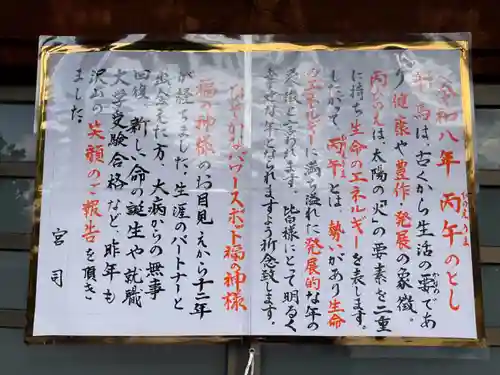 令和八年 丙午のとし
午・馬は古くから生活の要であ
り 健康や豊作・発展の象徴。
丙は、太陽の「火」の要素を二重
に持ち生命のエネルギーを表します。
したがって 丙午とは、勢いがあり生命
のエネルギーに満ち溢れた発展的な年の
象徴と言われます。皆様にとって明るく
幸せな年となられますよう祈念致します。
なでしこのパワースポット福の神様
福の神様のお目見えから十二年
が経ちました。生涯のパートナーと
出会えた方、大病からの無事
回復、新しい命の誕生や就職
大学受験合格など、昨年も
沢山の笑顔のご報告を頂き
ました。
宮司